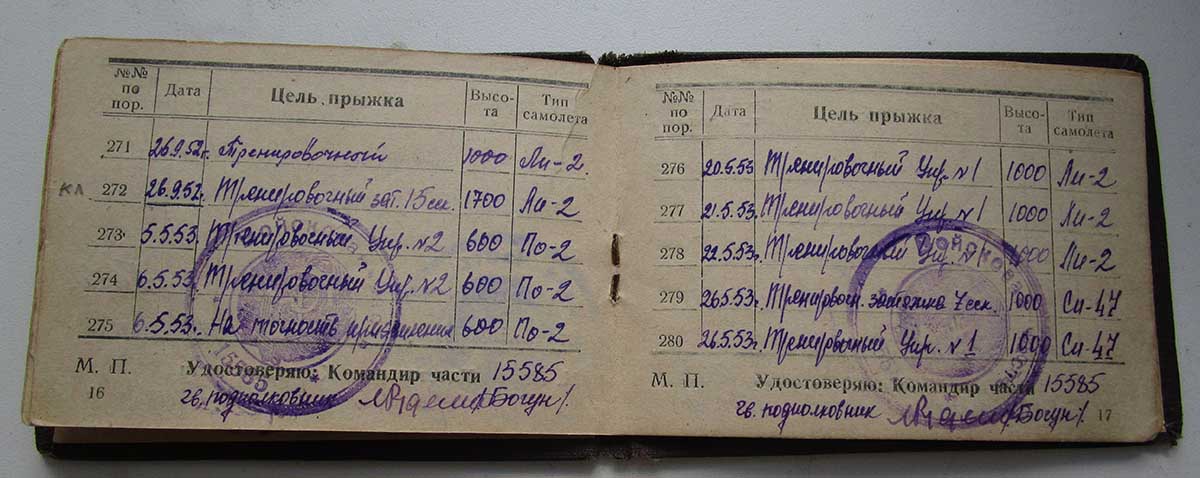 №№ по пор. Дата Цель прыжка Высо-та Тип самолета
271 26.9.52г. Тренировочный 1000 Ли-2
кл. 272 26.9.52г. Тренировочный зат. 15 сек. 1700 Ли-2
273 5.5.53. Тренировочный Упр. №2 600 По-2
274 6.5.53. Тренировочный Упр. №2 600 По-2
275 6.5.53. На точность приземления 600 По-2
М. П. Удостоверяю: Командир части 15585
16 гв. подполковник /Богун/.
№№ по пор. Дата Цель прыжка Высо-та Тип самолета
276 20.5.53 Тренировочный Упр. №1 1000 Ли-2
277 21.5.53. Тренировочный Упр. №1 1000 Ли-2
278 22.5.53г. Тренировочный Упр. №1 1000 Ли-2
279 26.5.53г. Тренировочн. затяжка 7 сек. 1000 Си-47
280 26.5.53г. Тренировочный Упр. №1 1000 Си-47
М. П. Удостоверяю: Командир части 15585
гв. подполковник /Богун/ 17